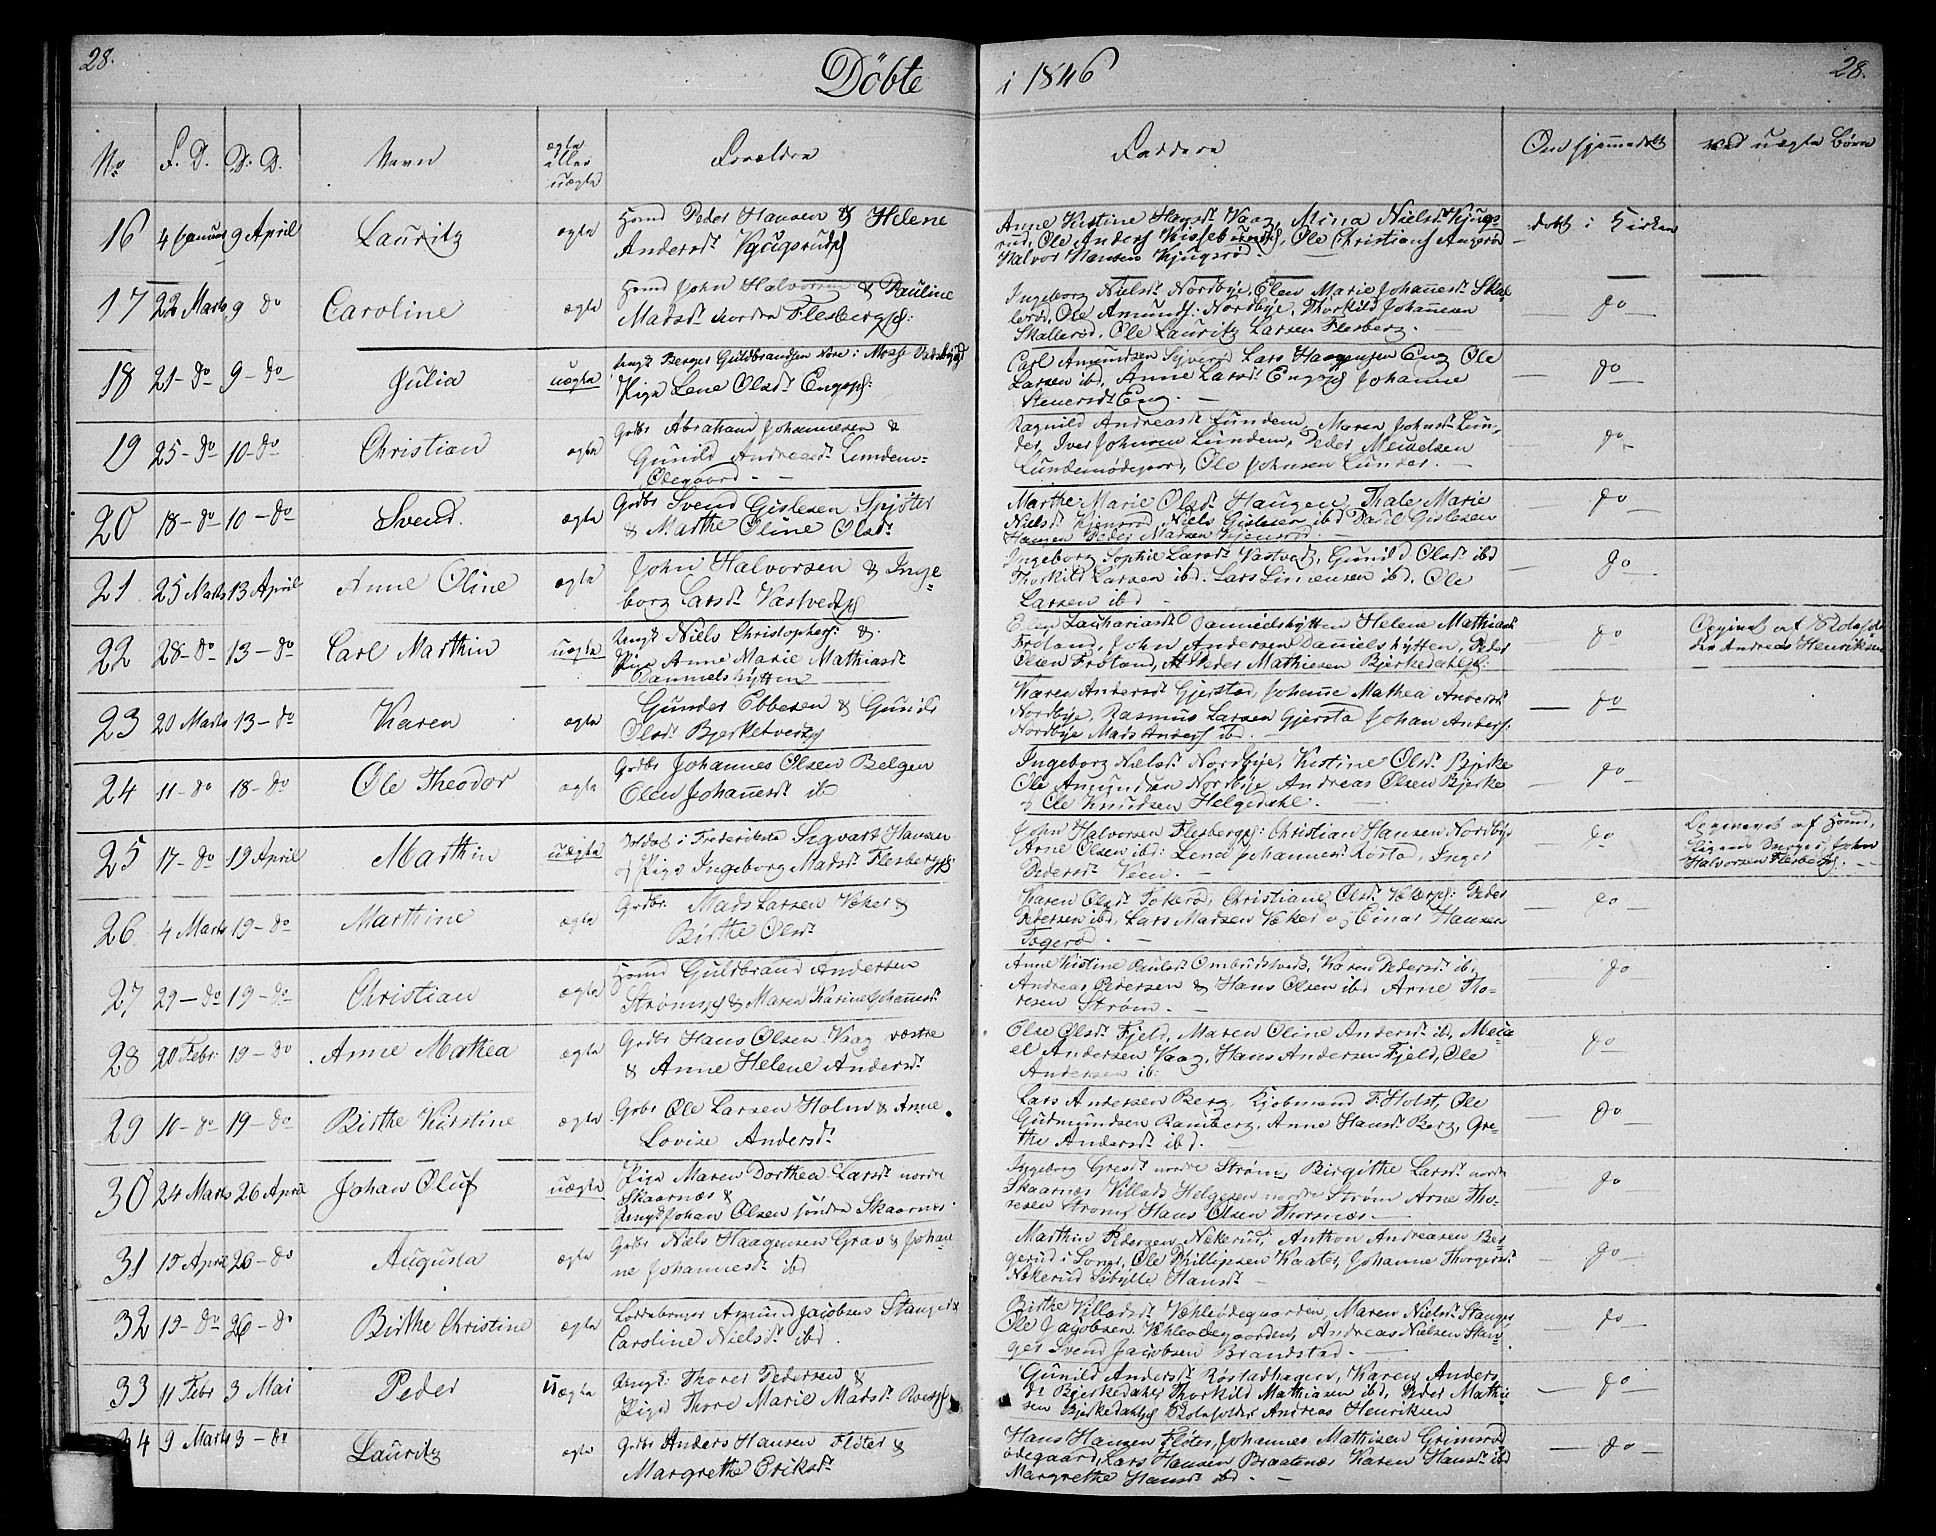 28.
Döbte
i 1846
28.
No
F. D.
D. D.
Navn
ægte eller uægte
Forældre
Faddere
Om hjemmedøbt
ved uægte Börn
16 4 Januar 9 April Lauritz ægte Huusmd Peder Hansen & Helene
Andersdr Kjugsrudpl
Anne Kirstine Hansdr Vaag, Mina Nielsdr Kjugs-
rud, Ole Anders Kisseb Ole Christians Angerød
Halvor Hansen Kjugsröd.
døbt i Kirken
17 22 Marts 9 do Caroline ægte Huusmd John Halvorsen & Pauline
Madsdr nordre Flesbergpl:
Ingeborg Nielsdr Nordbye, Elen Marie Johannesdr Skal-
leröd, Ole Amunds: Nordbye, Thorkild Johannesen
Skalleröd, Ole Lauritz Larsen Flesberg.
do
18 21 - do 9 - do Julia uægte Ungk Berger Guldbrandsen Nore i Moss
Pige Lene Olsdr Engepl:
Carl Amundsen Lars Haagensen Eng Ole
Larsen ibd, Anne Larsdr Engepl Johanne
Steuersdr Eng.
do
19 25 - do 10 - do Christian ægte Grdbr Abraham Johannesen &
Gunild Andreasdr Lundem-
Ölegaard
Ragnild Andreasdr Lundem, Maren Johnsdr Lun-
der, Iver Johnsen Lundem, Peder Meuelsen
Lundemödegaard, Ole Johnsen Lunder.
do
20 18 - do 10 - do Svend ægte Grdbr Svend Gislesen Spjöter
& Marthe Oline Olsdr
Marthe Marie Olsdr Haugen, Thale Marie
Nielsdr Kjensröd, Niels Gislesen ibd Gislesen
Haugen Peder Madsen Kjensröd.
do
21 25 Marts 13 April Anne Oline ægte John Halvorsen & Inge-
borg Larsdr Vastvedtpl
Ingeborg Sophie Larsdr Vastvedt, Gunild Olsdr ibd
Thorkild Larsen ibd. Lars ibd, Ole
Larsen ibd
do
22 28 - do 13 - do Carl Marthin uægte Ungk Niels Christophers: &
Pige Anne Marie Mathiasdr
Dannielshytten
Elen Zachariasdr Danielshytten Helene Mathiasdr
Froland, John Andersen Danielshytten, Peder
Olsen Froland, Peder Mathiesen Bjerkedahlpl:
do
Opgivet af Rolsfol-
der Andreas Henriksen
23 20 Marts 13 - do Karen ægte Gunder Ebbesen & Gunild
Olsdr Bjerketvedtpl
Karen Andersdr Gjerstad, Johanne Mathea Andersdr
Nordbye, Rasmus Larsen Gjerstad Johan Anders:
Nordbye Mads Anders ibd.
do
24 11 - do 18 - do Ole Theodor ægte Grdbr Johannes Olsen Belgen
Elen Johannesdr ibd
Ingeborg Nielsdr Nordbye, Kirstine Olsdr Bjerke
Ole Amundsen Nordbye Andreas Olsen Bjerke
og Ole Knudsen Helgedahl.
do
25 17 - do 19 April Marthin uægte Soldat i Frederiksta Sigvart Hansen
og Pige Ingeborg Madsdr Flesbergpl:
John Halvorsen Flesbergpl: Christian Hansen Nordby
Arne Olsen ibd: Lena Johannesdr Rostad, Inger
Pedersdr Veen.
do
Opgivet af Huusmd,
John
Halvorsen Flesbergpl.
26 4 Marts 19 - do Marthine ægte Grdbr. Mads Larsen Væker &
Birthe Olsdr
Karen Olsdr Fokeröd, Christiane Olsdr Vælerpl: Peder
Pedersen ibd, Lars Madsen Væker og Einar Hansen
Fogeröd.
do
27 29 - do 19 - do Christian ægte Huusmd Guldbrand Andersen
Strömspl & Maren Karine Johannesdr
Anne Kistine Paulsdr Ombudstvedt, Karen Pedersdr ib,
Andreas Pedersen & Hans Olsen ibd Arne Tho-
resen Ström.
do
28 20 Febr: 19 - do Anne Mathea ægte Grdbr Hans Olsen Vaag væstre
& Anne Helene Andersdr
Else Olsdr Fjeld, Maren Oline Andersdr ib, Meu-
el Andersen Vaag, Hans Andersen Fjeld, Ole
Andersen ib:
do
29 10 - do 19 - do Birthe Kirstine ægte Grdbr Ole Larsen Holm & Anne
Lovise Andersdr
Lars Andersen Berg, Kjöbmand F. Holst, Ole
Gudmundsen Ramberg, Anne Hansdr Berg, Gre-
the Andersdr ibd.
do
30 24 Marts 26 April Johan Oluf uægte Pige Maren Dorthea Larsdr nordre
Skaarnæs &
Ungk Johan Olsen söndre Skaarnæs
Ingeborg Gresdr nordre Ström, Birgithe Larsdr nordre
Skaarnæs Villads Helgesen nordre Ström Arne Tho-
resen Ström, Hans Olsen Thorsnæs
do
31 15 April 26 - do Augusta ægte Grdbr Niels Haagensen Grav & Johan-
ne Johannesdr ibd
Marthin Pedersen Nækerud, Anthon Andreasen Ber-
gerud i Ole Phillipsen Kaate, Johanne Thorgersdr
Nækerud Sibylle Hansdr
do
32 19 - do 26 - do Birthe Christine ægte Loddeborger Amund Jacobsen Stanger &
Caroline Nielsdr ibd.
Birthe Villadsdr Vehleödegaarden, Maren Nielsdr Stanger
Ole Jacobsen Vehleödegaarden, Andreas Nielsen Stan-
ger Svend Jacobsen Brandstad.
do
33 11 Febr 3 Mai Peder uægte Ungk: Thorer Pedersen &
Pige Thore Marie Madsdr
Gunild Andersdr Röstadhagen, Karen Anders
dr Bjerkedahl, Thorkild Mathiasen ibd, Peder Mathi-
sen Bjerkedahlpl Rolsfolder Andreas Henriksen
do
34 9 Marts 3 - do Lauritz ægte Grdbr Anders Hansen Flöter &
Margrethe Eriksdr
Hans Hansen Flöter, Johannes Mathisen Grimsröd
ödegaard, Lars Hansen Braatenæs Karen Hansdr ibd
Margrethe Hansdr ibd.
do